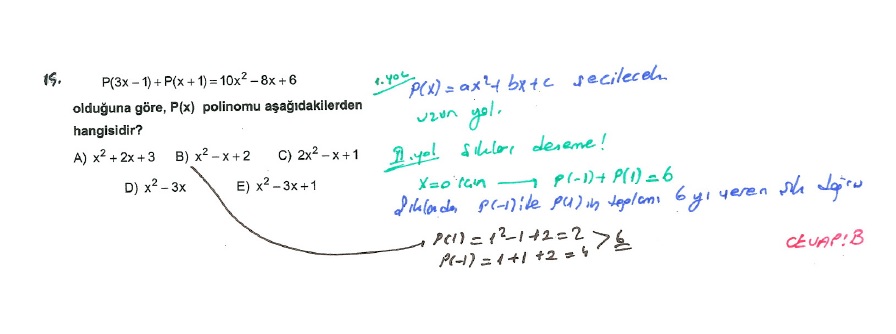 15.
P(3x – 1) + P(x + 1) = 10x² – 8x + 6
olduğuna göre, P(x) polinomu aşağıdakilerden
hangisidir?
A) x² + 2x + 3 B) x² – x + 2 C) 2x² – x + 1
D) x² – 3x E) x² – 3x + 1
1.YOL P(x) = ax² + bx + c secilecek
uzun yol.
II.yol Şıkları deneme!
x=0 için → P(-1) + P(1) = 6
Şıklarda P(-1) ile P(1) in toplamı 6 yı veren şık doğru
P(1) = 1²-1+2 = 2 > 6
P(-1) = 1+1+2 = 4
CEVAP: B